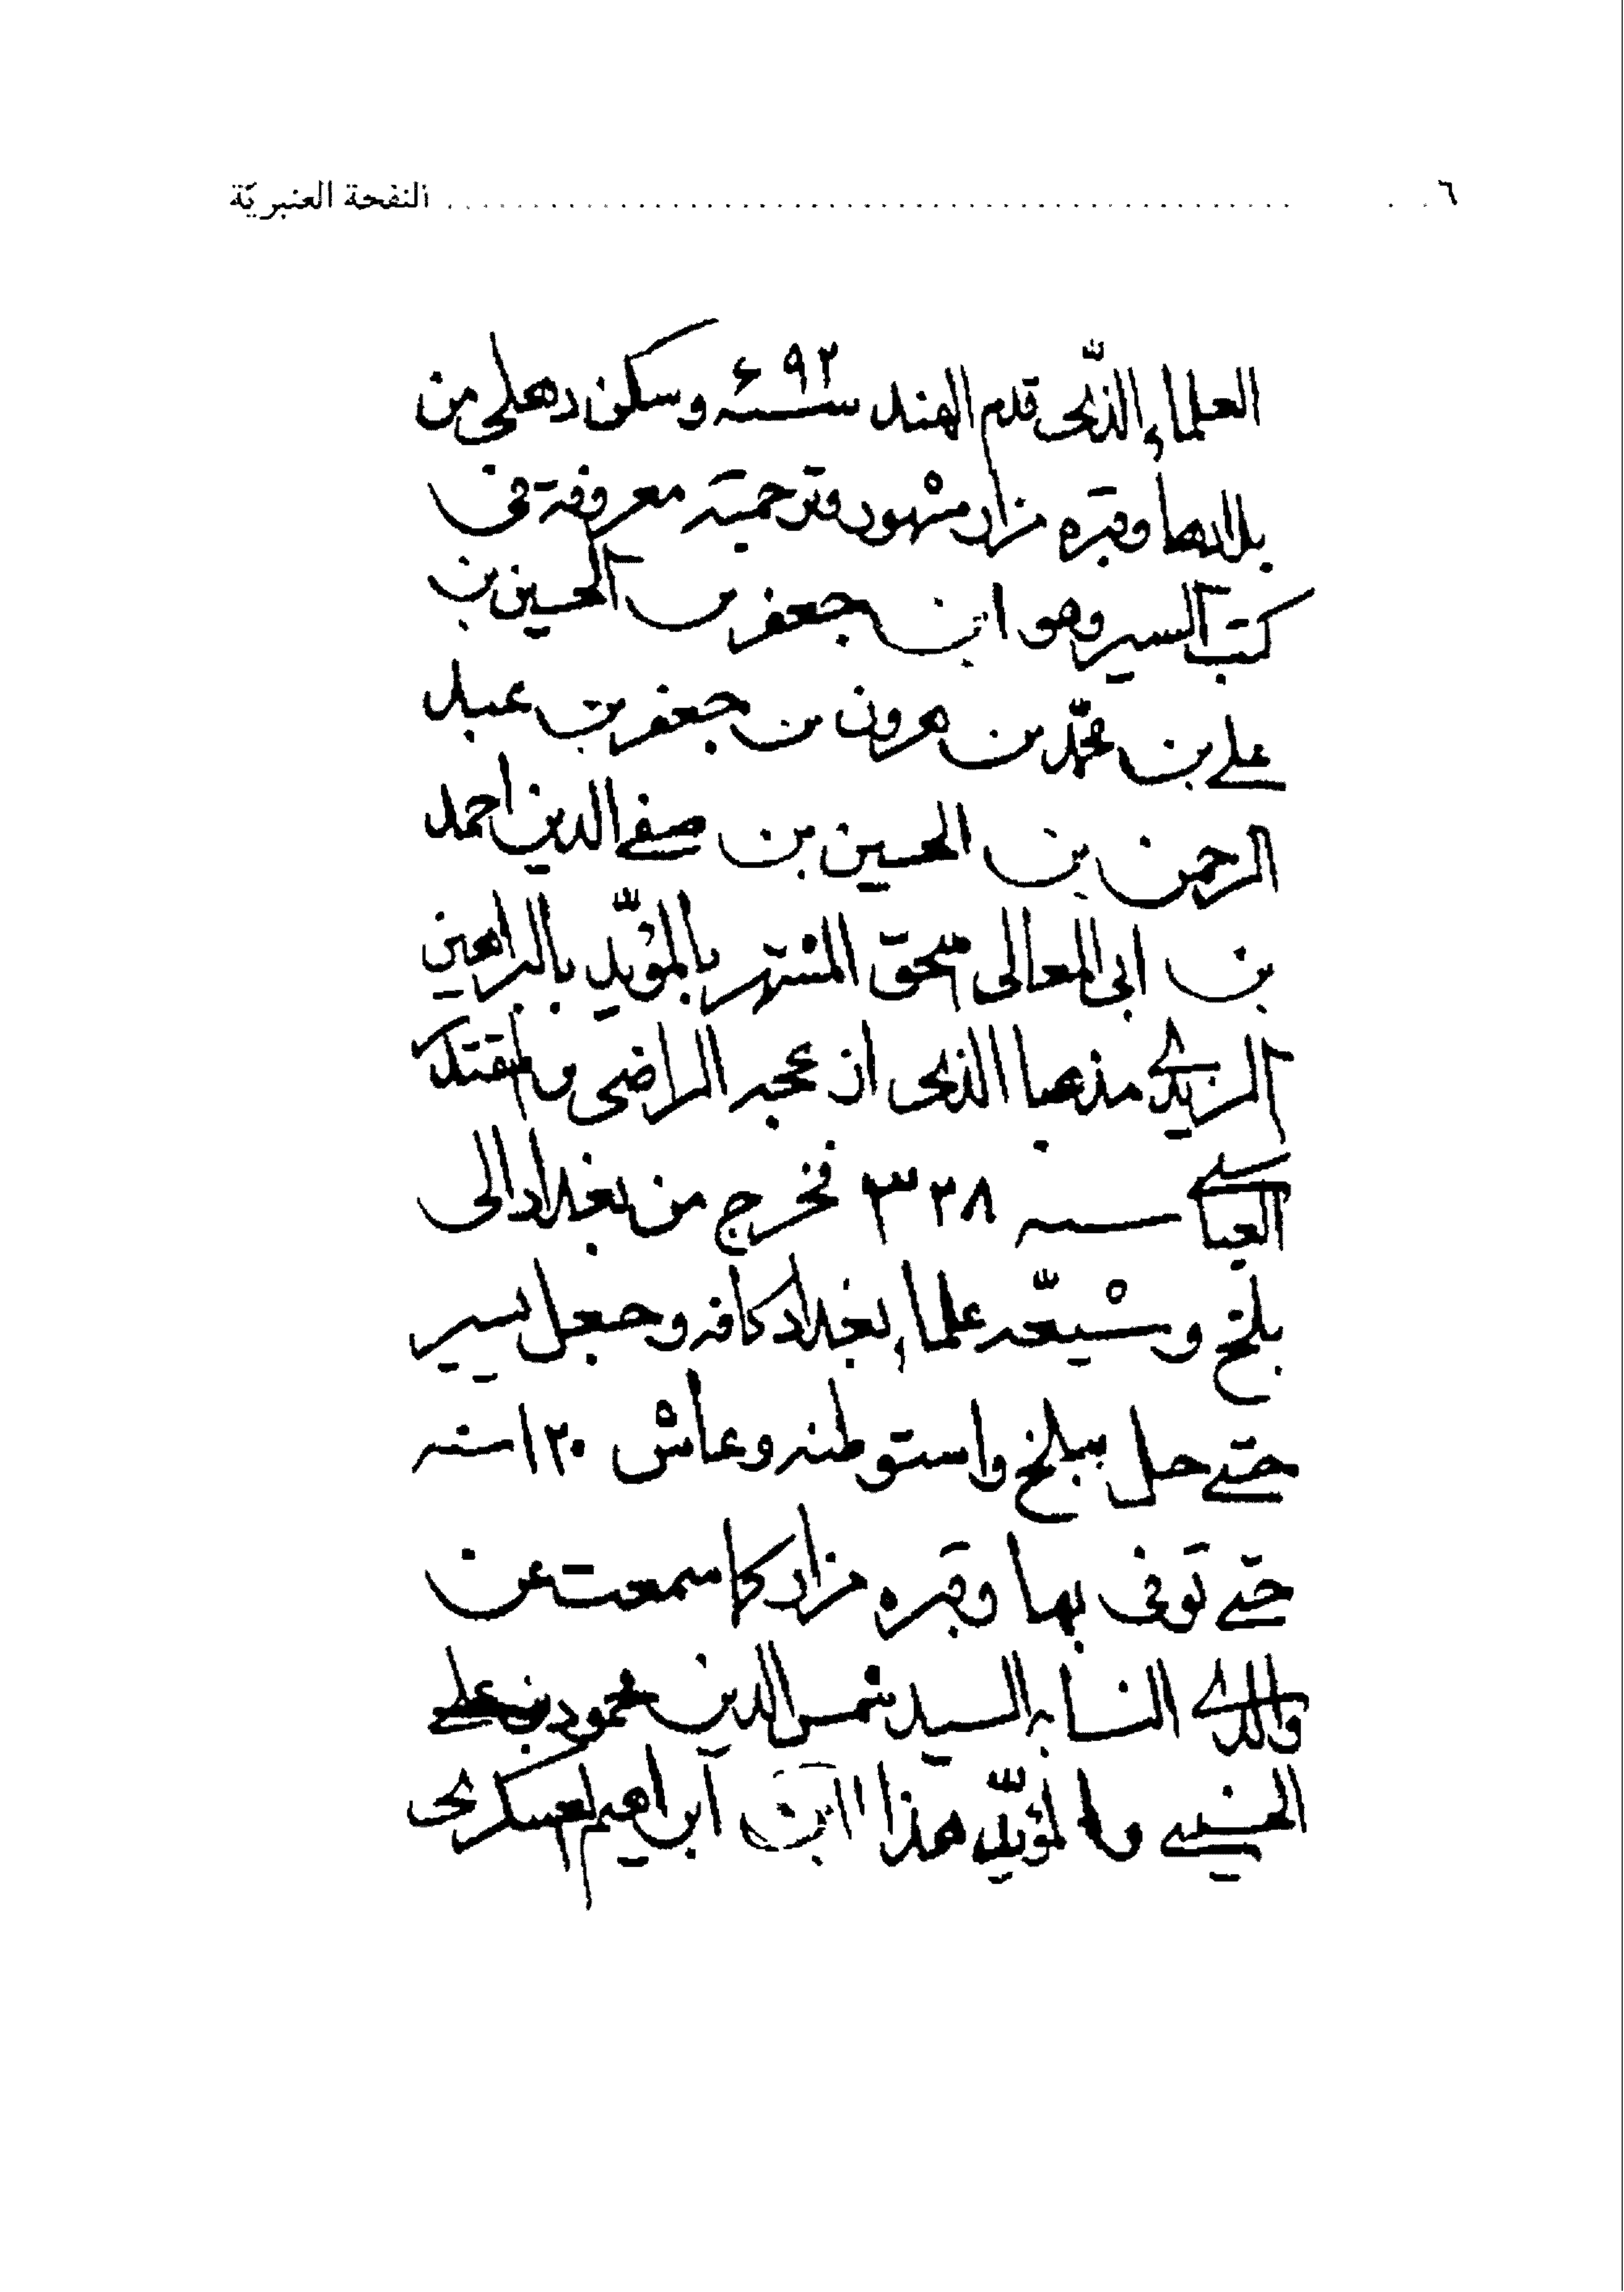 ٦ النفحة العنبريّة
العلماء الذّى قدم الهند سنه ۶۹۲ وسكن دهلى من
بلادها وقبره مزار مشهور وترجمته معروفة فى
كتب السير وهو ابن جعفر بن الحسين بن
على بن محمّد بن هرون بن جعفر بن عبد
الرحمن بن الحسين بن صفي الدين احمد
بن ابى المعالى اسحق المشتهر بالمؤيّد بالبراهين
الزيدي مذهبا الذى ازعجه الراضى والمقتدر
العباسي سنه ٣٢٨ فخرج من بغداد الى
بلخ وشيّعه علماء بغداد كافه وجعل يسير
حتى حل ببلخ واستوطنه وعاش ١٢٠ سنه
حتى توفى بها وقبره مزار كما سمعت عن
والدي النسابه السيد شمس الدين محمود بن على
الحسيني والمؤيّد هذا ابن ابراهيم العسكرى